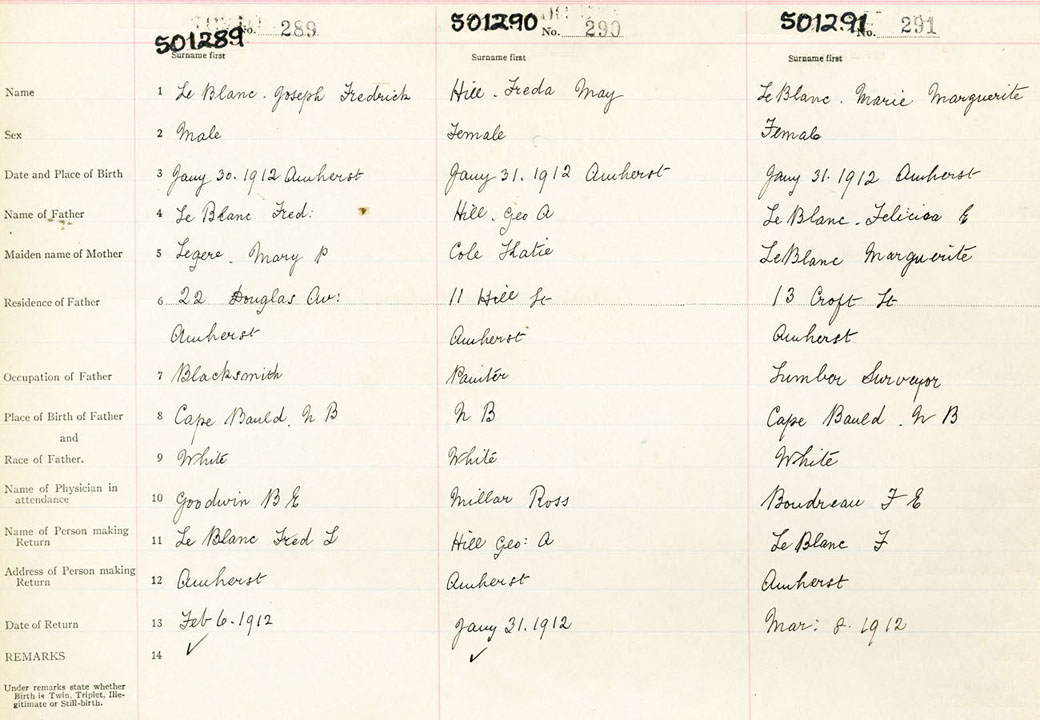 501289 No. 289 501290 No. 290 501291 No. 291
Surname first Surname first Surname first
Name 1 Le Blanc. Joseph Fredrick Hill. Freda May LeBlanc. Marie Marguerite
Sex 2 Male Female Female
Date and Place of Birth 3 Jany 30. 1912 Amherst Jany 31. 1912 Amherst Jany 31. 1912 Amherst
Name of Father 4 Le Blanc Fred: Hill. Geo A Le Blanc. E
Maiden name of Mother 5 Legere. Mary P Cole Katie LeBlanc Marguerite
Residence of Father 6 22 Douglas Av: 11 Hill St 13 Croft St
Amherst Amherst Amherst
Occupation of Father 7 Blacksmith Painter Lumber Surveyor
Place of Birth of Father 8 Cape Bauld. N B N B Cape Bauld. N B
and
Race of Father. 9 White White White
Name of Physician in
attendance 10 Goodwin B E Millar Ross Boudreau F E
Name of Person making
Return 11 Le Blanc Fred L Hill Geo: A Le Blanc F
Address of Person making
Return 12 Amherst Amherst Amherst
Date of Return 13 Feb 6. 1912 Jany 31. 1912 Mar: 8. 1912
REMARKS 14 ✓ ✓
Under remarks state whether
Birth is Twin, Triplet, Ille-
gitimate or Still-birth.